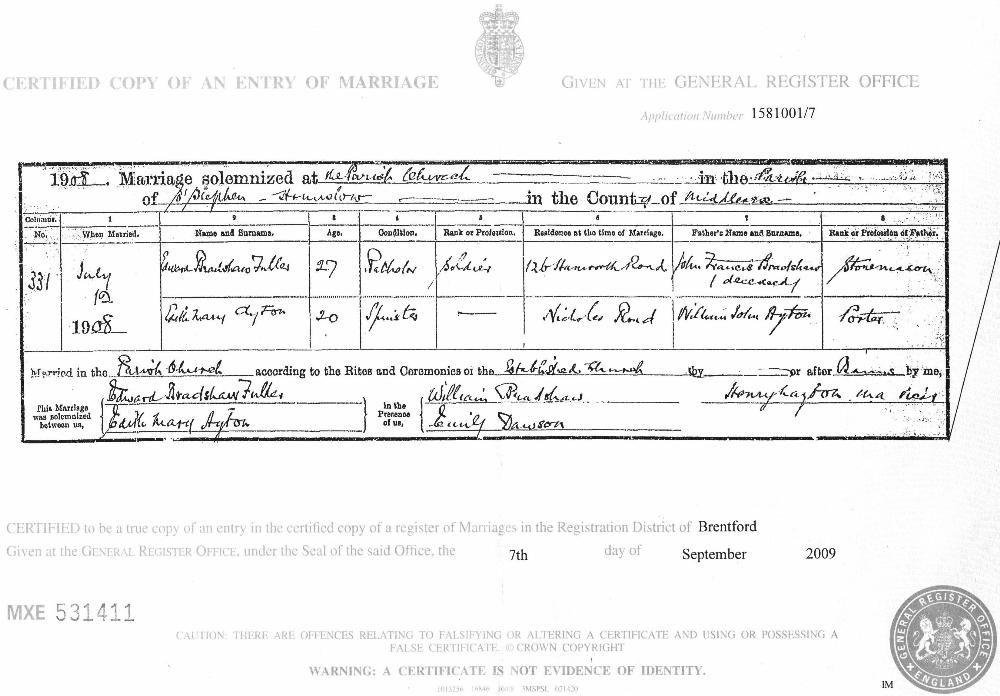 CERTIFIED COPY OF AN ENTRY OF MARRIAGE
GIVEN AT THE GENERAL REGISTER OFFICE
Application Number 1581001/7
1908. Marriage solemnized at the Parish Church in the Parish
of St Stephen - Hounslow in the County of Middlesex
Columns. 1 2 3 4 5 6 7 8
No. When Married. Name and Surname. Age. Condition. Rank or Profession. Residence at the time of Marriage. Father's Name and Surname. Rank or Profession of Father.
331 July 12 1908
Edward Bradshaw Fuller 27 Bachelor Soldier 126 Hanworth Road John Francis Bradshaw (deceased) Stonemason
Edith Mary Ayton 20 Spinster — Nicholes Road William John Ayton Porter
Married in the Parish Church according to the Rites and Ceremonies of the Established Church by or after Banns by me,
This Marriage was solemnized between us,
Edward Bradshaw Fuller
Edith Mary Ayton
in the Presence of us,
William Bradshaw
Emily Dawson
CERTIFIED to be a true copy of an entry in the certified copy of a register of Marriages in the Registration District of Brentford
Given at the GENERAL REGISTER OFFICE, under the Seal of the said Office, the 7th day of September 2009
MXE 531411
CAUTION: THERE ARE OFFENCES RELATING TO FALSIFYING OR ALTERING A CERTIFICATE AND USING OR POSSESSING A
FALSE CERTIFICATE. © CROWN COPYRIGHT
WARNING: A CERTIFICATE IS NOT EVIDENCE OF IDENTITY.
IM
GENERAL REGISTER OFFICE
ENGLAND